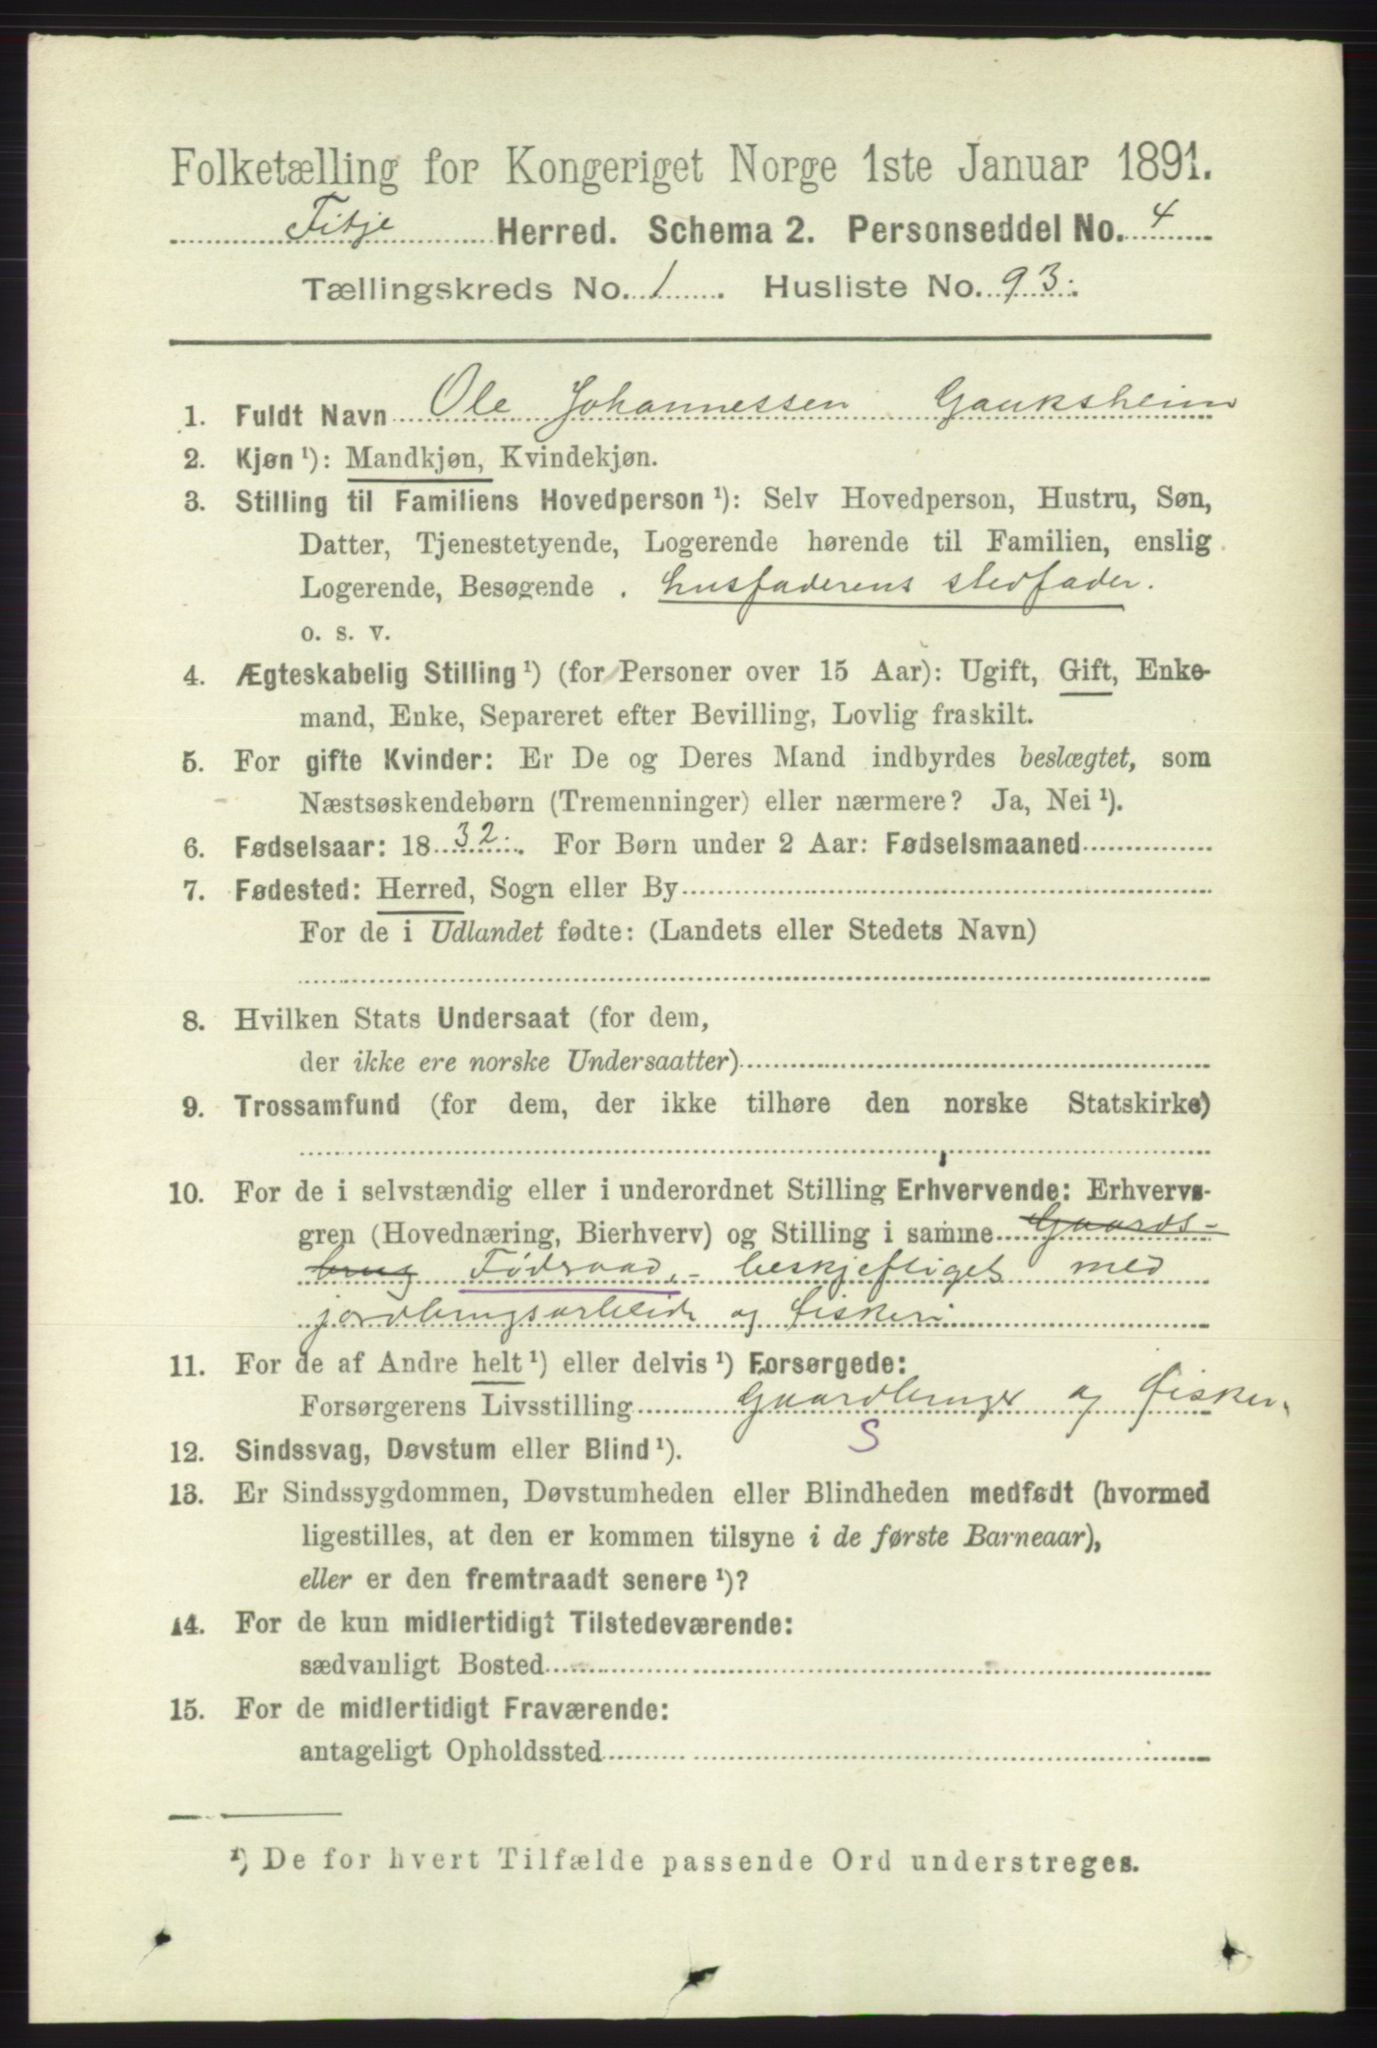 Folketælling for Kongeriget Norge 1ste Januar 1891.
Fitje Herred. Schema 2. Personseddel No. 4
Tællingskreds No. 1. Husliste No. 93.
1. Fuldt Navn Ole Johannessen Gauksheim
2. Kjøn ¹): Mandkjøn, Kvindekjøn.
3. Stilling til Familiens Hovedperson ¹): Selv Hovedperson, Hustru, Søn,
Datter, Tjenestetyende, Logerende hørende til Familien, enslig
Logerende, Besøgende . husfaderens stedfader.
o. s. v.
4. Ægteskabelig Stilling ¹) (for Personer over 15 Aar): Ugift, Gift, Enke-
mand, Enke, Separeret efter Bevilling, Lovlig fraskilt.
5. For gifte Kvinder: Er De og Deres Mand indbyrdes beslægtet, som
Næstsøskendebørn (Tremenninger) eller nærmere? Ja, Nei ¹).
6. Fødselsaar: 1832. For Børn under 2 Aar: Fødselsmaaned
7. Fødested: Herred, Sogn eller By
For de i Udlandet fødte: (Landets eller Stedets Navn)
8. Hvilken Stats Undersaat (for dem,
der ikke ere norske Undersaatter)
9. Trossamfund (for dem, der ikke tilhøre den norske Statskirke)
10. For de i selvstændig eller i underordnet Stilling Erhvervende: Erhvervs-
gren (Hovednæring, Bierhverv) og Stilling i samme Gaards-
brug Födraad, - beskjeftiget med
jordbrugsarbeide og fiskeri
11. For de af Andre helt ¹) eller delvis ¹) Forsørgede:
Forsørgerens Livsstilling Gaardbruger og fisker.
S
12. Sindssvag, Døvstum eller Blind ¹).
13. Er Sindssygdommen, Døvstumheden eller Blindheden medfødt (hvormed
ligestilles, at den er kommen tilsyne i de første Barneaar),
eller er den fremtraadt senere ¹)?
14. For de kun midlertidigt Tilstedeværende:
sædvanligt Bosted
15. For de midlertidigt Fraværende:
antageligt Opholdssted
¹) De for hvert Tilfælde passende Ord understreges.